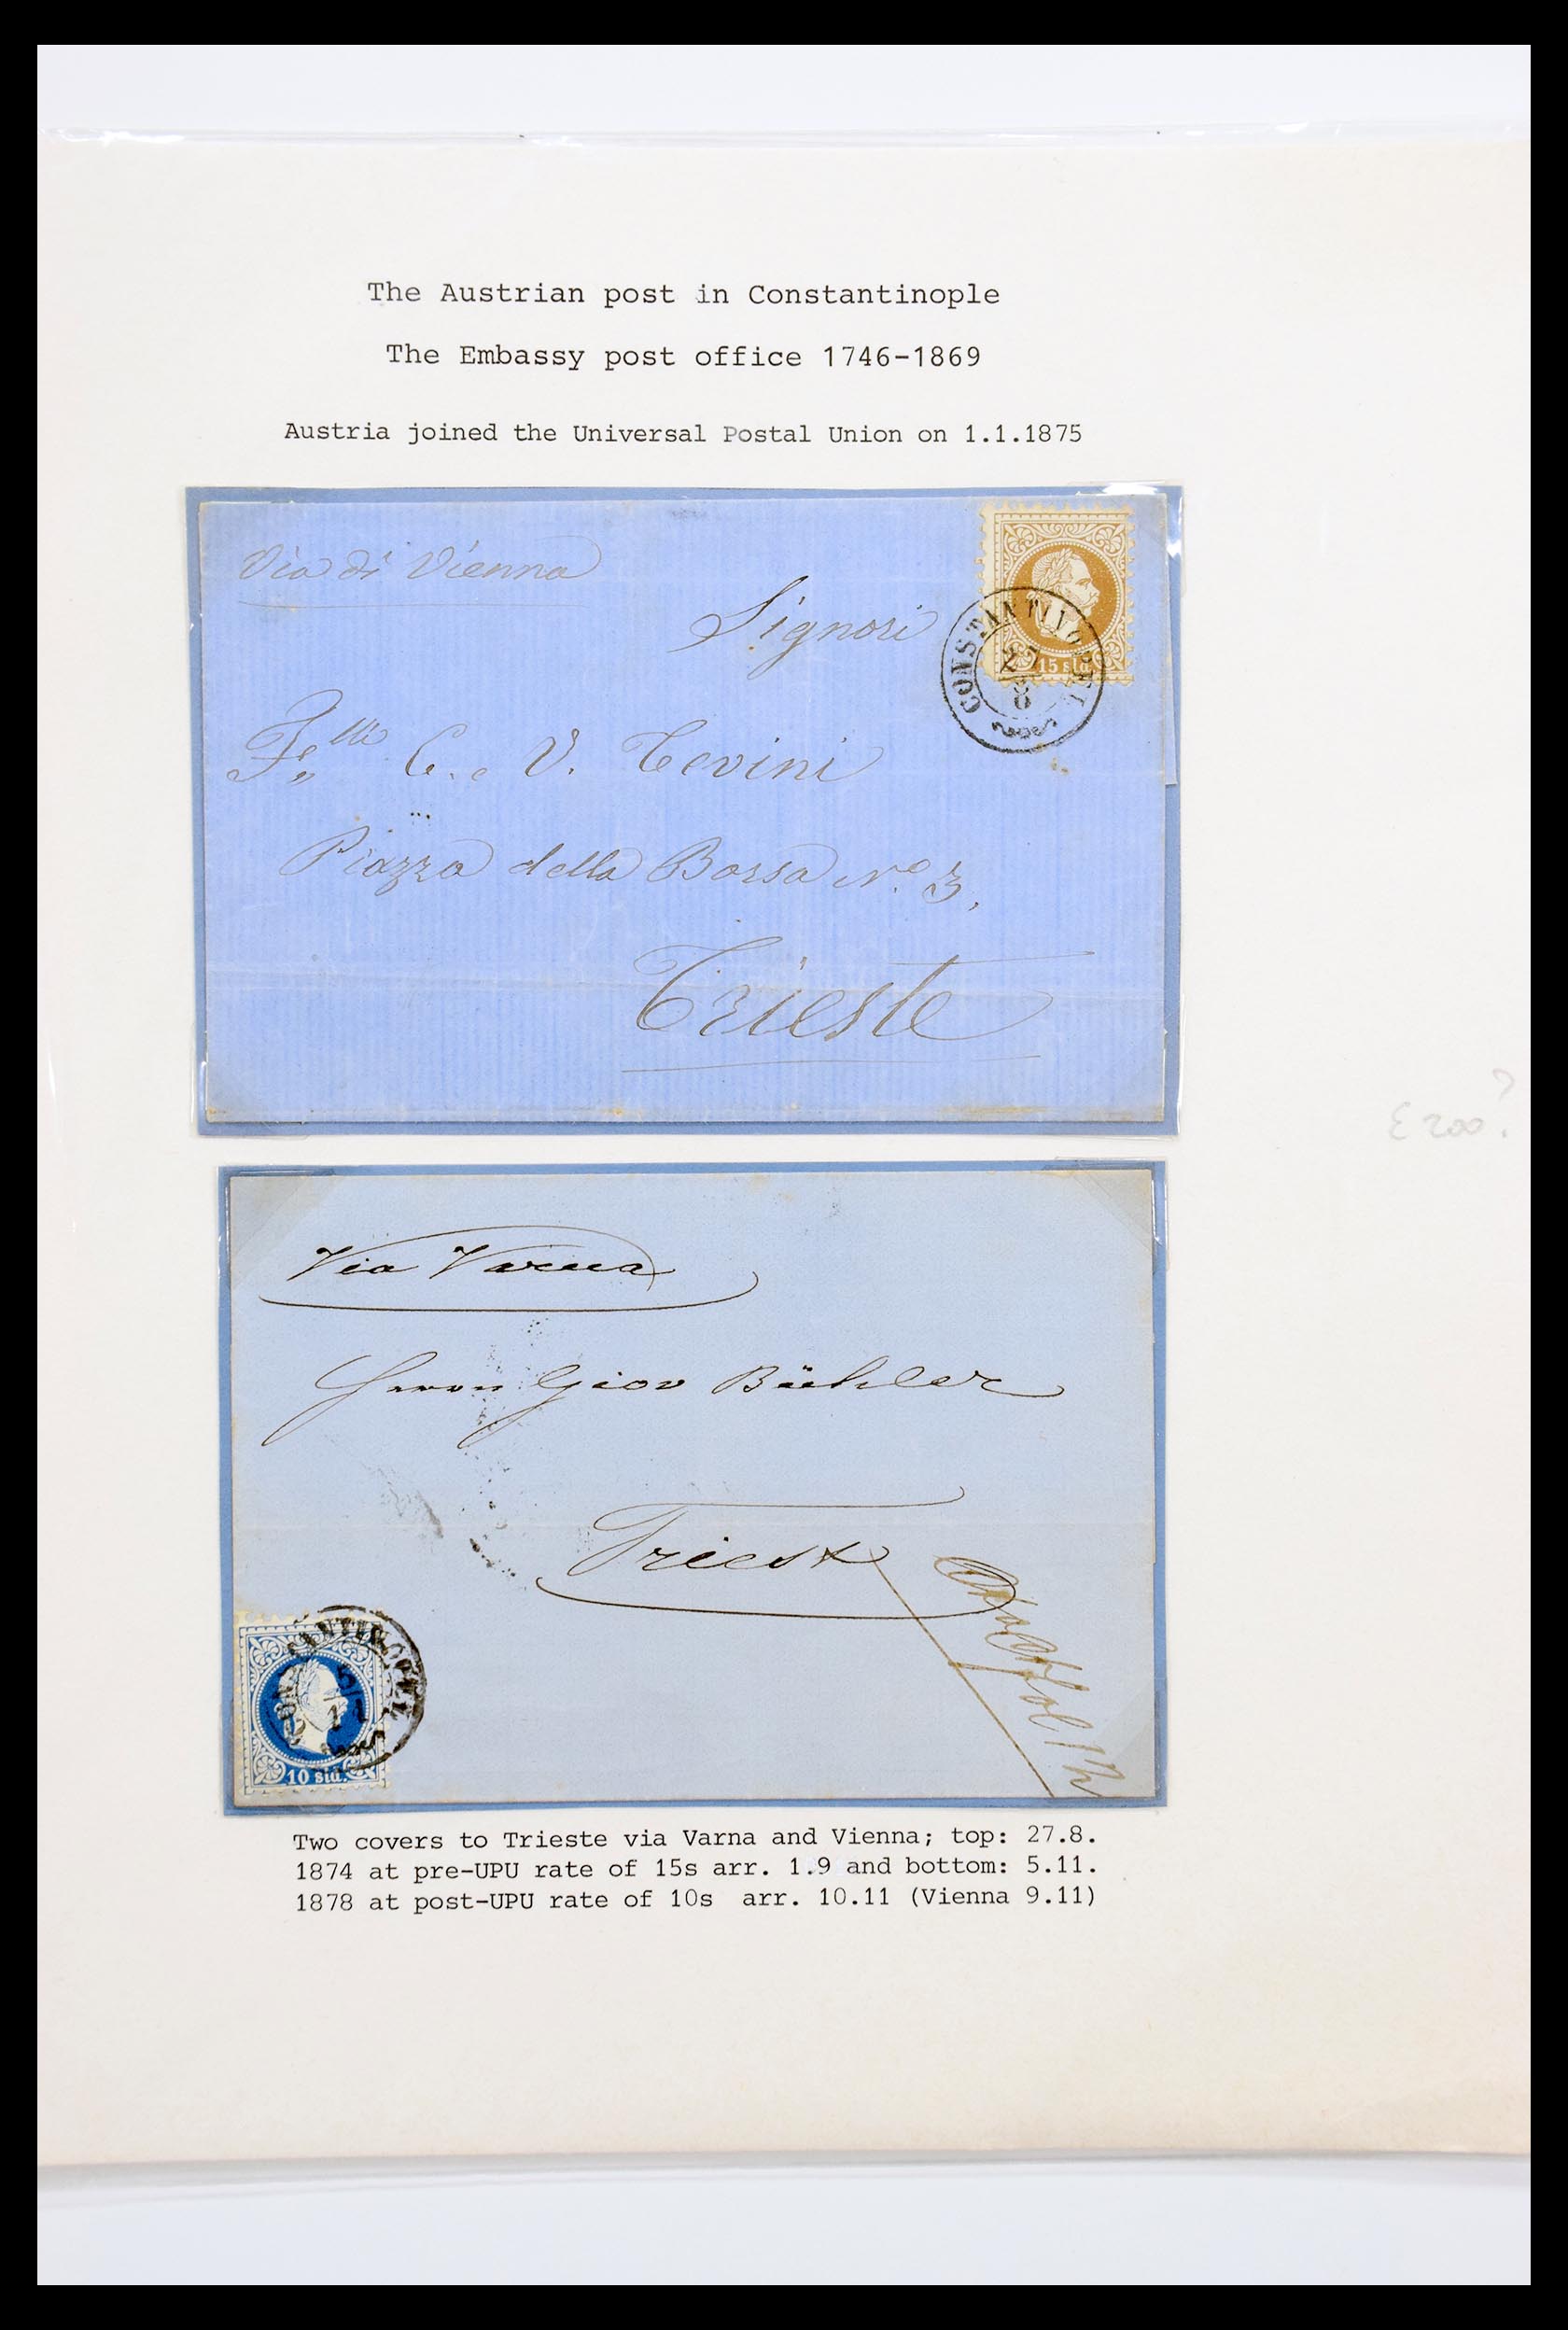 The Austrian post in Constantinople
The Embassy post office 1746-1869
Austria joined the Universal Postal Union on 1.1.1875
Via di Vienna
Signori
F.lli C. e V. Tevini
Piazza della Borsa No 3,
Trieste
15 sld.
CONSTANTINOPEL
27
8
£ 200?
Via Varna
Herrn Giov Bühler
Triest
CONSTANTINOPEL
5/11
10 sld.
Two covers to Trieste via Varna and Vienna; top: 27.8.
1874 at pre-UPU rate of 15s arr. 1.9 and bottom: 5.11.
1878 at post-UPU rate of 10s arr. 10.11 (Vienna 9.11)